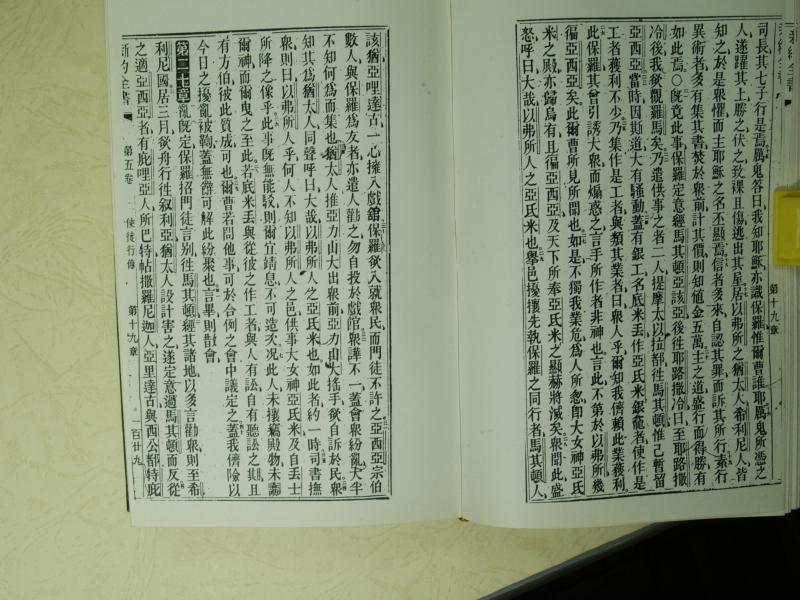 新約全書
第十九章
司長其七子行是焉厲鬼答曰我知耶穌亦識保羅惟爾曹誰耶厲鬼所憑之
人遂躍其上勝之伏之致裸且傷逃出其屋居以弗所之猶太人希利尼人皆
知之於是眾懼而主耶穌之名丕顯焉信者多來自認其罪而訴其所行素行
異術者多有集其書焚於眾前計其價則知值金五萬主之道盛行而得勝有
如此焉○既竟此事保羅定意經馬其頓亞該亞後往耶路撒冷曰至耶路撒
冷後我必觀羅馬矣乃遣供事之者二人提摩太以拉都往馬其頓惟己暫留
亞西亞當時因斯道大有騷動蓋有銀工名底米丟作亞氐米銀龕者使作是
工者獲利不少乃集作是工者與類其業者曰眾人乎爾知我儕賴此業獲利
此保羅其曾引誘大眾而煽惑之言手所作者非神也言此不第於以弗所幾
徧亞西亞矣此爾曹所見所聞也如是不獨我業危為人所忽卽大女神亞氐
米之殿亦歸烏有且徧亞西亞及天下所奉亞氐米之顯赫將滅矣眾聞此盛
怒呼曰大哉以弗所人之亞氐米也舉邑擾攘先執保羅之同行者馬其頓人
該猶亞哩達古一心擁入戲館保羅欲入就眾民而門徒不許之亞西亞宗伯
數人與保羅為友者亦遣人勸之勿自投於戲館眾譁不一蓋會眾紛亂大半
不知何為而集也猶太人推亞力山大出眾前亞力山大搖手欲自訴於民眾
知其為猶太人同聲呼曰大哉以弗所人之亞氐米也如此者約一時司書撫
眾則曰以弗所人乎何人不知以弗所人之邑供事大女神亞氐米及自丟士
所降之像乎此事既無能駁則爾宜靖息不可造次況此人未攘竊殿物未讟
爾神而爾曳之至此若底米丟與從彼之作工者與人有訟自有聽訟之期且
有方伯彼此質成可也爾曹若問他事可於合例之會中議定之蓋我儕險以
今日之擾亂被鞫蓋無辭可解此紛聚也言畢則散會
第二十章 亂既定保羅招門徒言別往馬其頓經其諸地以多言勸眾則至希
利尼國居三月欲舟行往叙利亞猶太人設計害之遂定意過馬其頓而反從
之適亞西亞者有庇哩亞人所巴特帖撒羅尼迦人亞里達古與西公都特庇
新約全書 第五卷 使徒行傳 第十九章 一百廿九